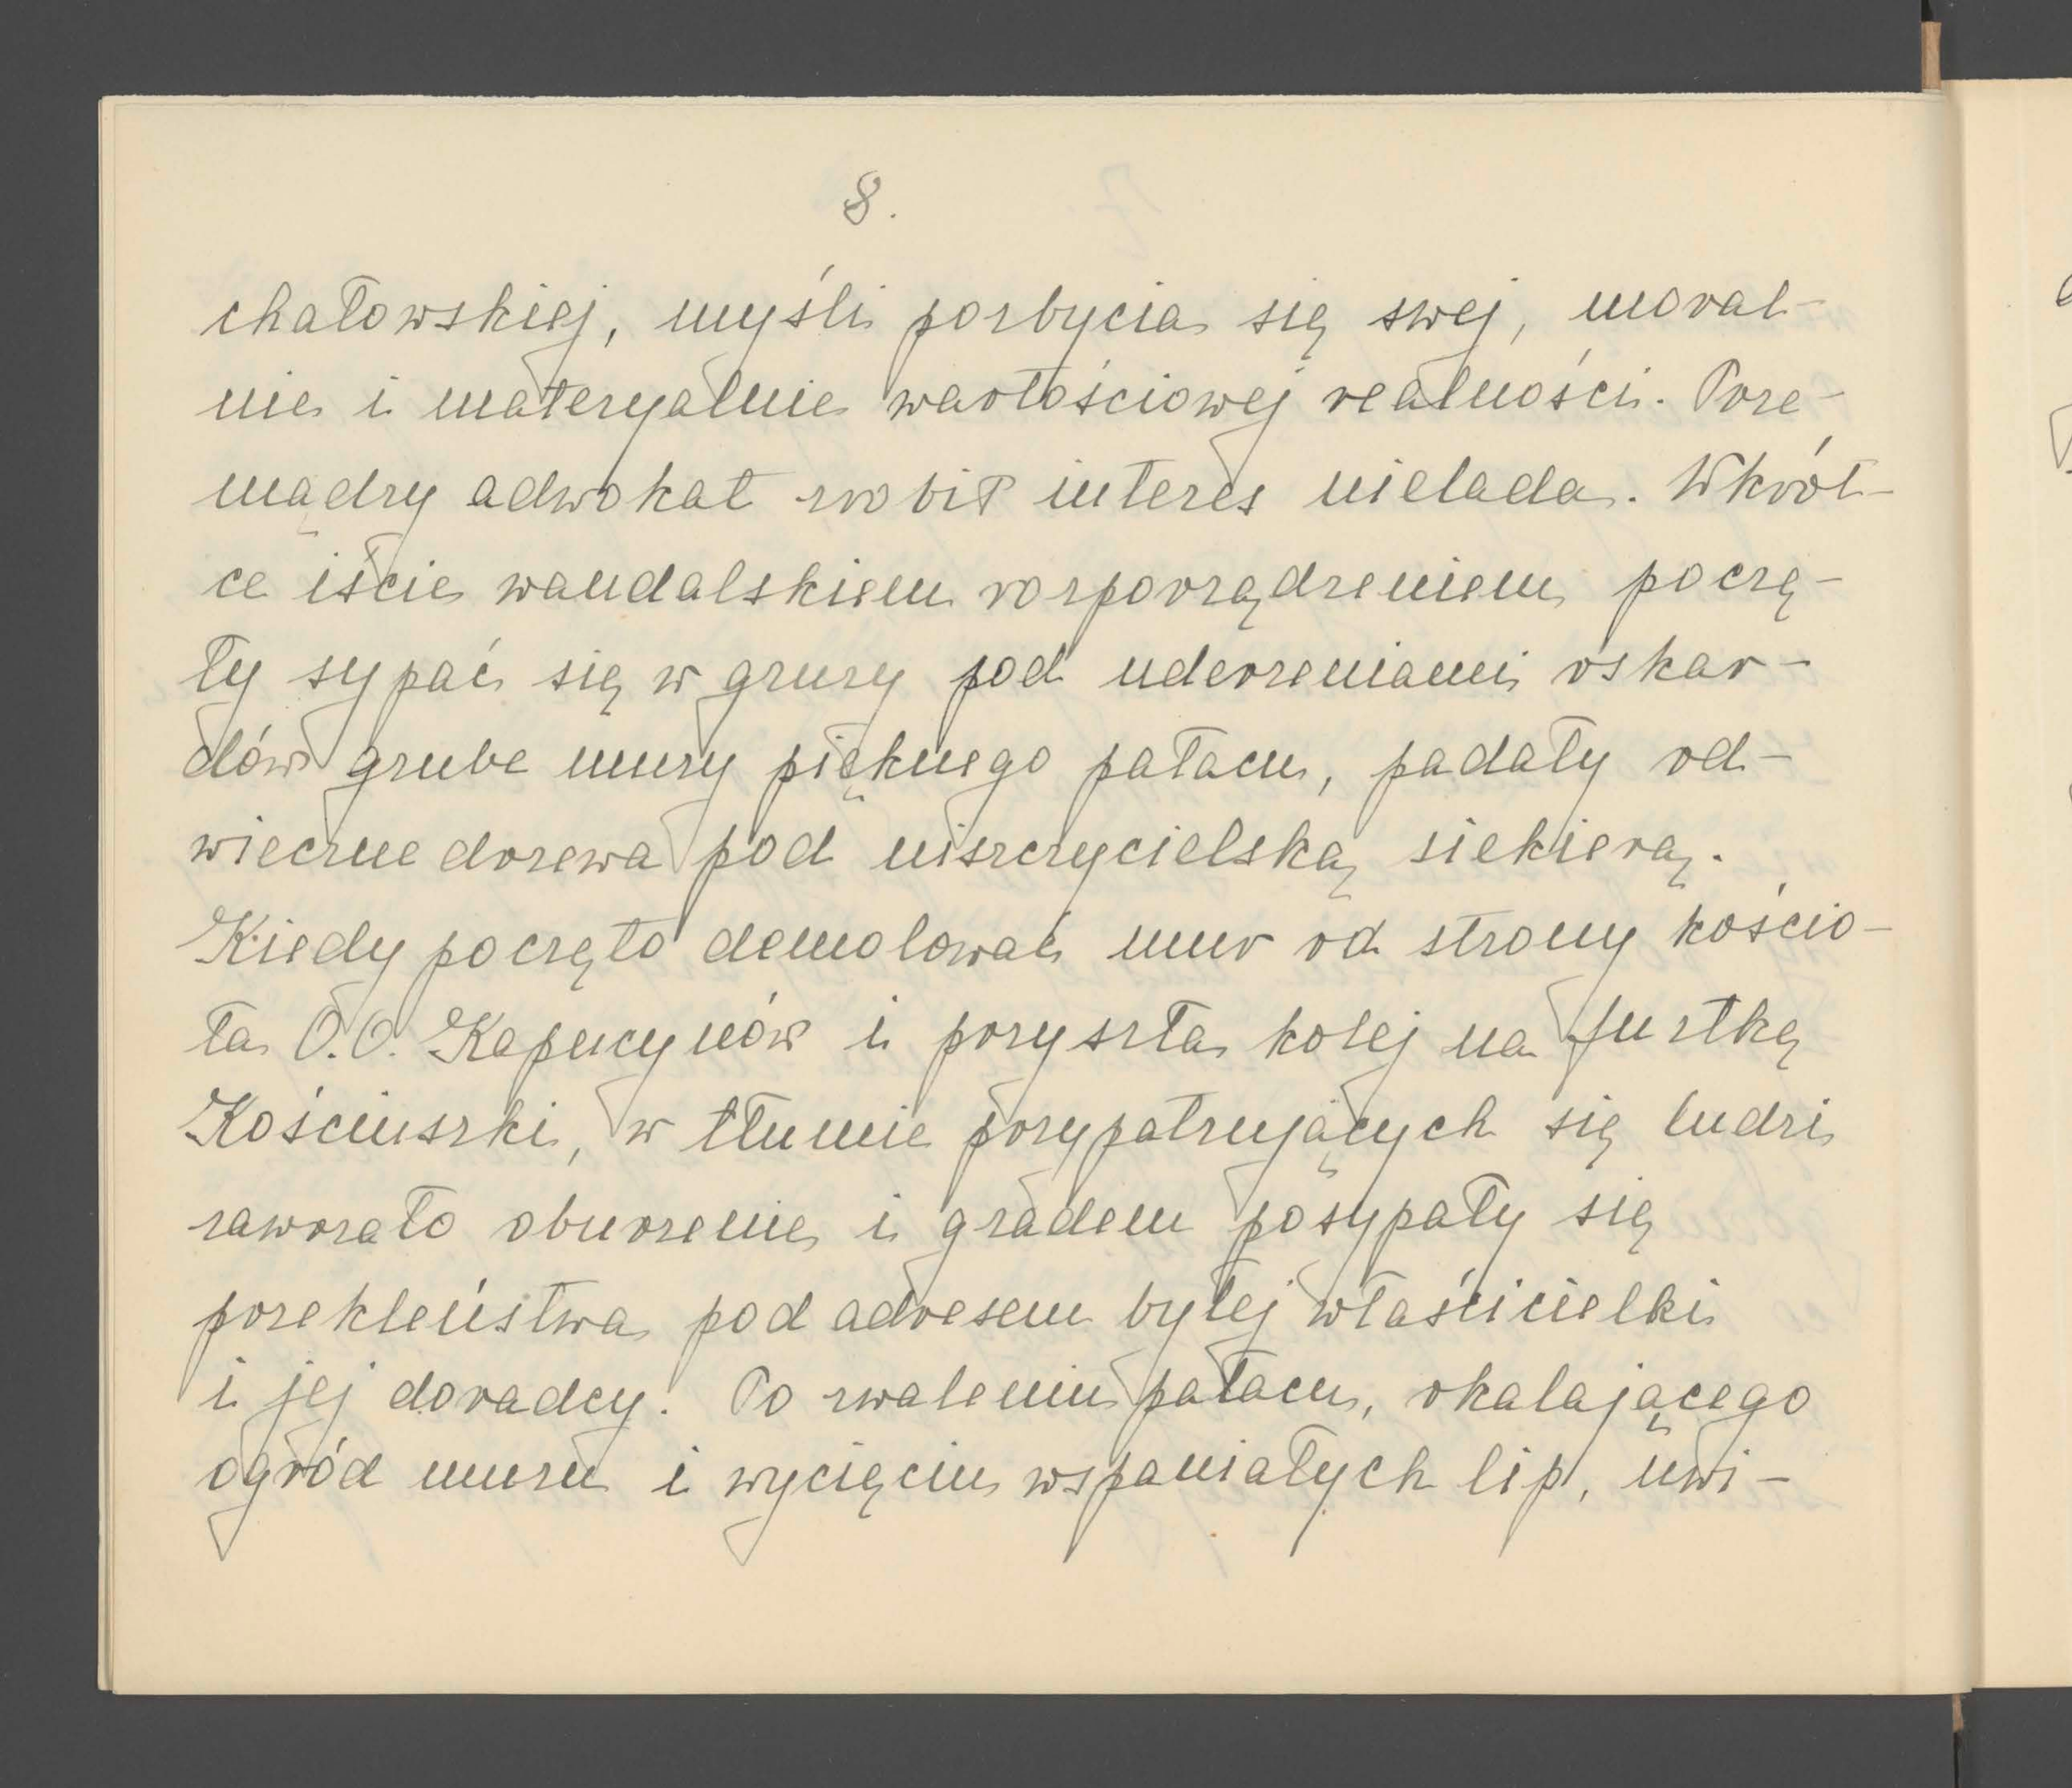 8.
chałowskiej, myśli pozbycia się swej, moral-
nie i materyalnie wartościowej realności. Prze-
mądry adwokat zrobił interes nielada. Wkrót-
ce iście wandalskiem rozporządzeniem, poczę-
ły sypać się w gruzy pod uderzeniami oskar-
dów grube mury pięknego pałacu, padały od-
wieczne drzewa pod niszczycielską siekierą.
Kiedy poczęto demolować mur od strony kościo-
ła O.O. Kapucynów i przyszła kolej na furtkę
Kościuszki, w tłumie przypatrujących się ludzi
zawrzało oburzenie i gradem posypały się
przekleństwa pod adresem byłej właścicielki
i jej doradcy. Po zwaleniu pałacu, okalającego
ogród muru i wycięciu wspaniałych lip, uwi-